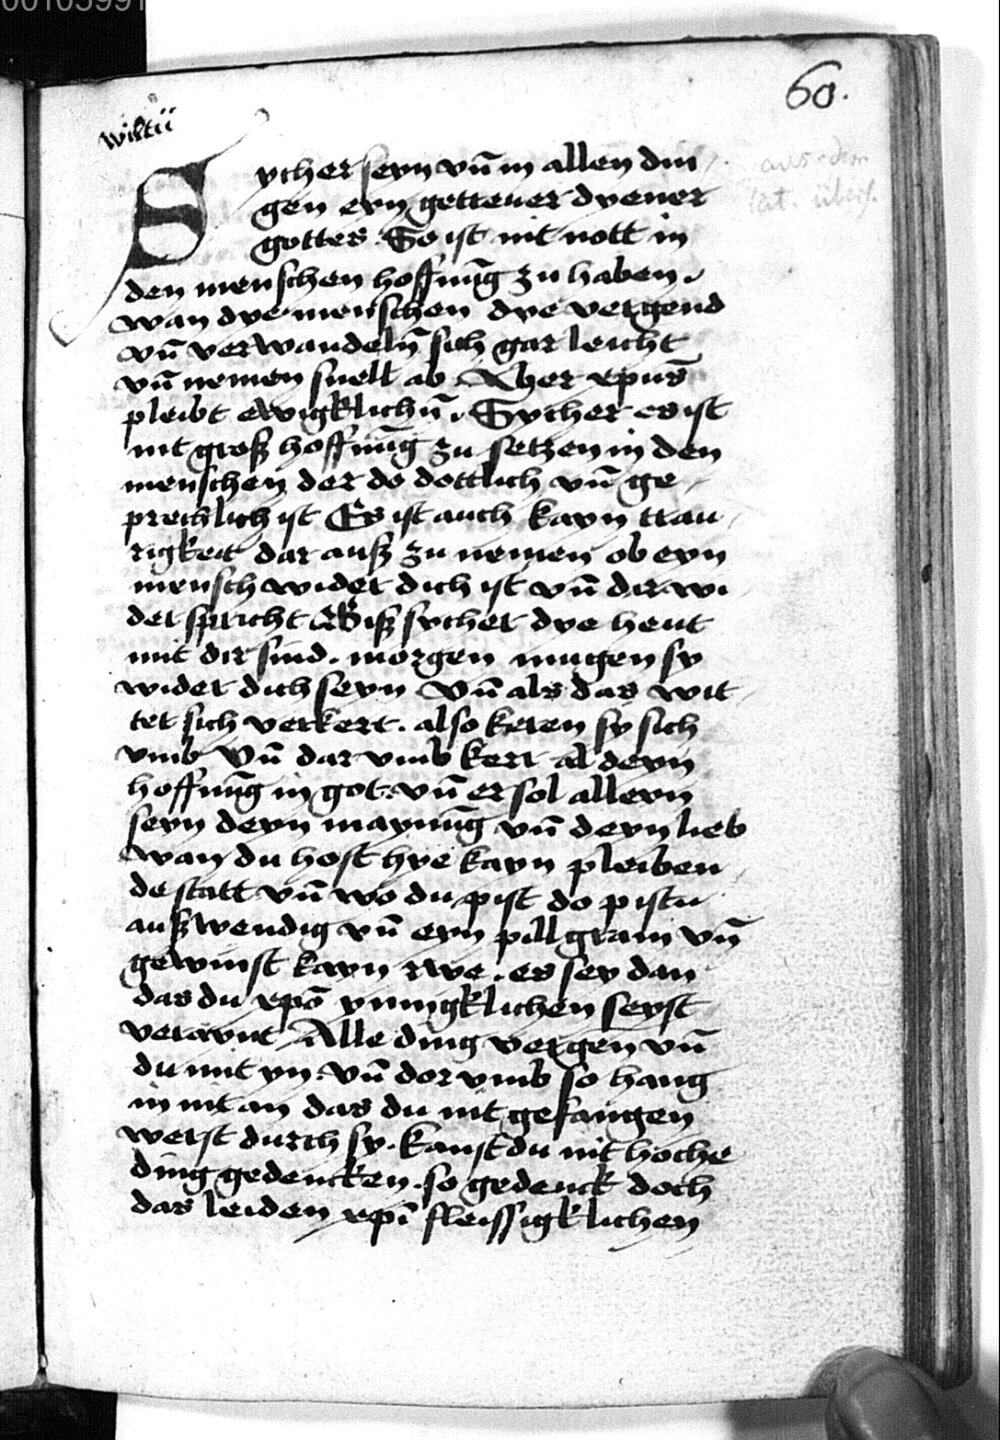 00105991
60.
wiltu
aus dem
lat. übers.
Sycher seyn vn̄ in allen din
gen eyn getteuer dyener
gottes. So ist nit nott in
den menschen hoffnūg zu haben.
wan dye menschen dye vergend
vn̄ verwandeln̄ sich gar leicht
vn̄ nemen snell ab Aber xpus̄
pleibt ewigklichn̄. Sycher es ist
nit groß hoffnūg zu setzen in den
menschen der do dottlich vn̄ ge
prechlich ist Es ist auch kayn trau
rigkeit dar auß zu nemen ob eyn
mensch wider dich ist vn̄ dir wi
der spricht Biß sycher dye heut
mit dir sind. morgen mugen sy
wider dich seyn Vn̄ als das wit
ter sich verkert. also keren sy sich
vmb Vn̄ dar vmb kerr al deyn
hoffnūg in got. vn̄ er sol alleyn
seyn deyn maynūg vn̄ deyn lieb
wan du host hye kayn pleiben
de statt vn̄ wo du pist do pistu
außwendig vn̄ eyn pillgram vn̄
gewinst kayn rwe. es sey dan
das du xpō ynnigklichen seyst
veraynt Alle ding vergen vn̄
du mit yn. vn̄ dor vmb so hang
in nit an das du nit gefangen
werst durch sy. Kanst du nit hoche
ding gedencken. so gedenck doch
das leiden xpī fleissigklichen